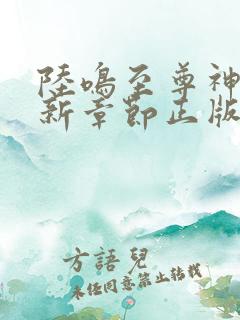 陸鳴至尊神
新章節正版
方語兒
未任同意禁止轉載